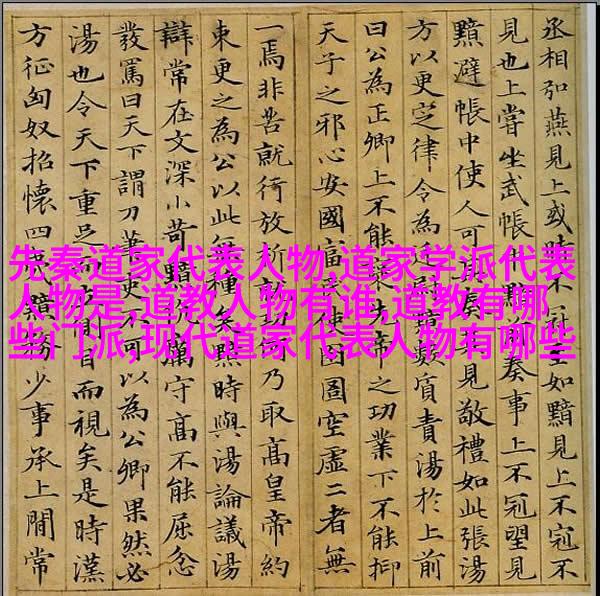 先秦道家代表人物,道家学派代表
人物是,道教人物有谁,道教有哪
些门派,现代道家代表人物有哪些
丞相弘燕見上或時不至如黯見上不冠不
見也上嘗坐武帳黯奏事上不冠望見
黯避帳中使人可奏見敬禮如此張湯
方以更定律令為黯質責湯於上前
曰公為正卿上不能先帝之功業下不能抑
天子之邪心安國富使囹圄空虛二者無
一焉非苦就行放析就乃取高皇帝約
束更之為公以此無種矣黯時與湯論議湯
辯常在文深小苛黯厲守高不能屈忿
發罵曰天下謂刀筆不可以為公卿果然必
湯也令天下重足而目而視矣是時漢
方征匈奴招懷四夷黯務少事承上間常